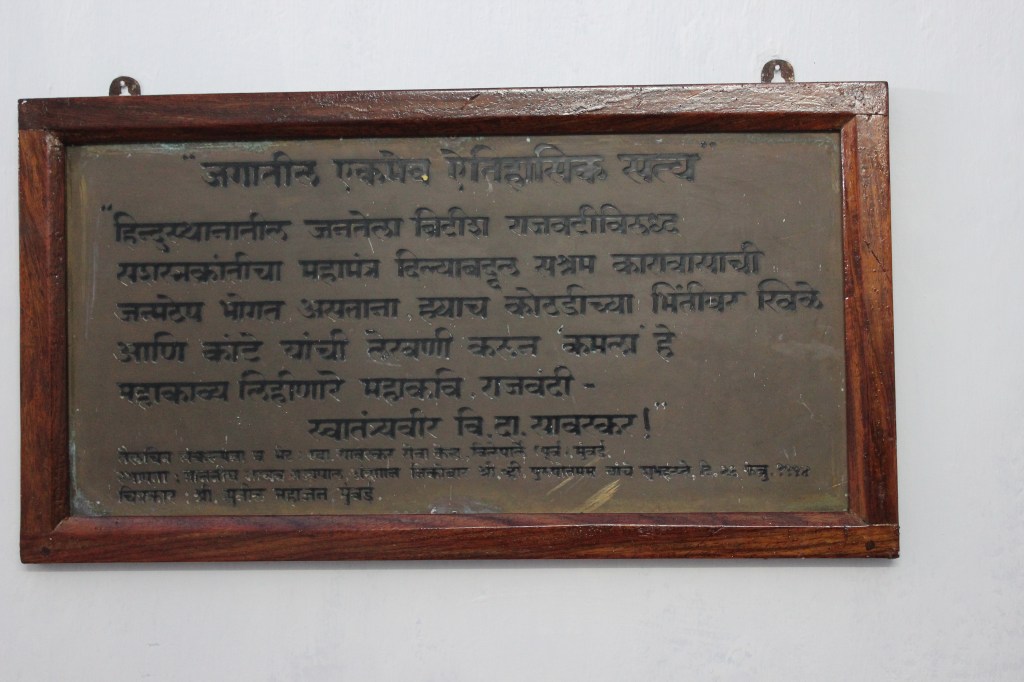 "जगातील एकमेव ऐतिहासिक सत्य"
"हिन्दुस्थानातील जनतेला ब्रिटीश राजवटीविरुध्द
सशस्त्रक्रांतीचा महामंत्र दिल्याबद्दल सश्रम कारावासाची
जन्मठेप भोगत असताना ह्याच कोठडीच्या भिंतीवर खिळे
आणि कांटे यांची लेखणी करून 'कमला' हे
महाकाव्य लिहीणारे महाकवि राजबंदी -
स्वातंत्र्यवीर वि. दा. सावरकर!"
तैलचित्र संकल्पना व भेट : स्वा. सावरकर सेवा केंद्र, विलेपार्ले (पूर्व), मुंबई.
श्री. यांचे शुभहस्ते, दि.
चित्रकार : श्री. महाजन, मुंबई.